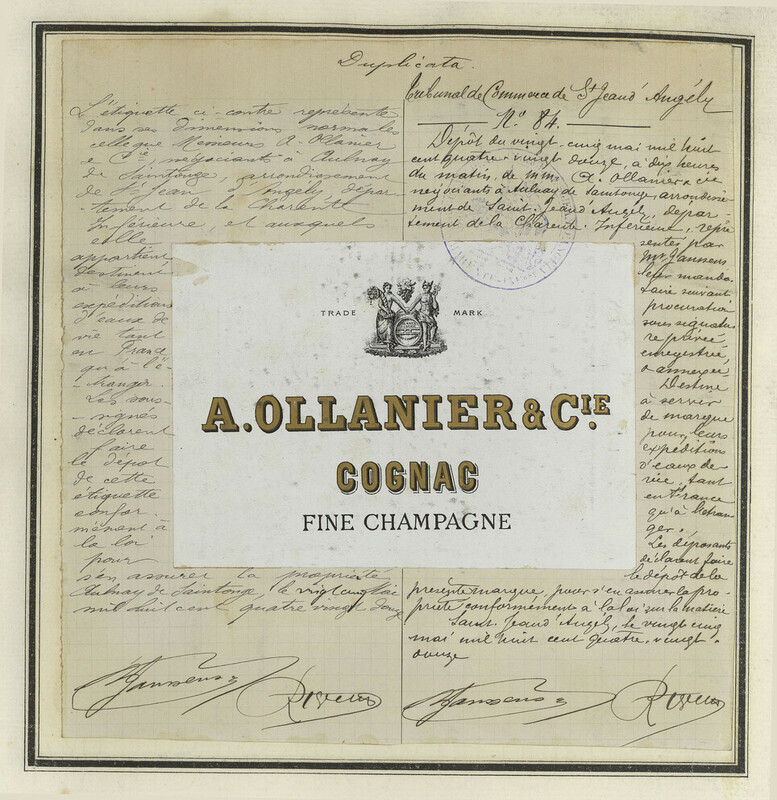 Duplicata.
L'étiquette ci-contre représente
dans ses dimensions normales
celle que Messieurs A. Ollanier
& Cie, négociants à Aulnay
de Saintonge, arrondissement
de St Jean d'Angély dépar-
tement de la Charente
Inférieure, et auxquels
elle
appartient
destinent
à leurs
expéditions
d'eaux de
vie tant
en France
qu'à l'é-
-tranger.
Les sous-
-signés
déclarent
faire
le dépôt
de cette
étiquette
confor-
mément à
la loi
pour
s'en assurer la propriété
Aulnay de Saintonge, le vingt cinq Mai
mil huit cent quatre vingt douze
Janssens
Tribunal de Commerce de St Jean d'Angély
No 84.
Dépôt du vingt cinq mai mil huit
cent quatre-vingt douze, à dix heures
du matin, de MM. A. Ollanier & Cie
négociants à Aulnay de Saintonge, arrondisse-
ment de Saint-Jean d'Angély, dépar
tement de la Charente-Inférieure, repré
sentés par
Mr Janssens
leur manda-
taire suivant
procuration
sous signature
privée,
enregistrée,
& annexée.
Destiné
à servir
de marque
pour leurs
expédition
d'eaux de
vie, tant
en France
qu'à l'étran
ger.
Les déposants
déclarent faire
le dépôt de la
présente marque, pour s'en assurer la pro-
priété conformément à la loi sur la matière
Saint-Jean d'Angély, le vingt cinq
mai mil huit cent quatre-vingt-
douze
Janssens
TRADE MARK
A. OLLANIER & CIE.
COGNAC
FINE CHAMPAGNE